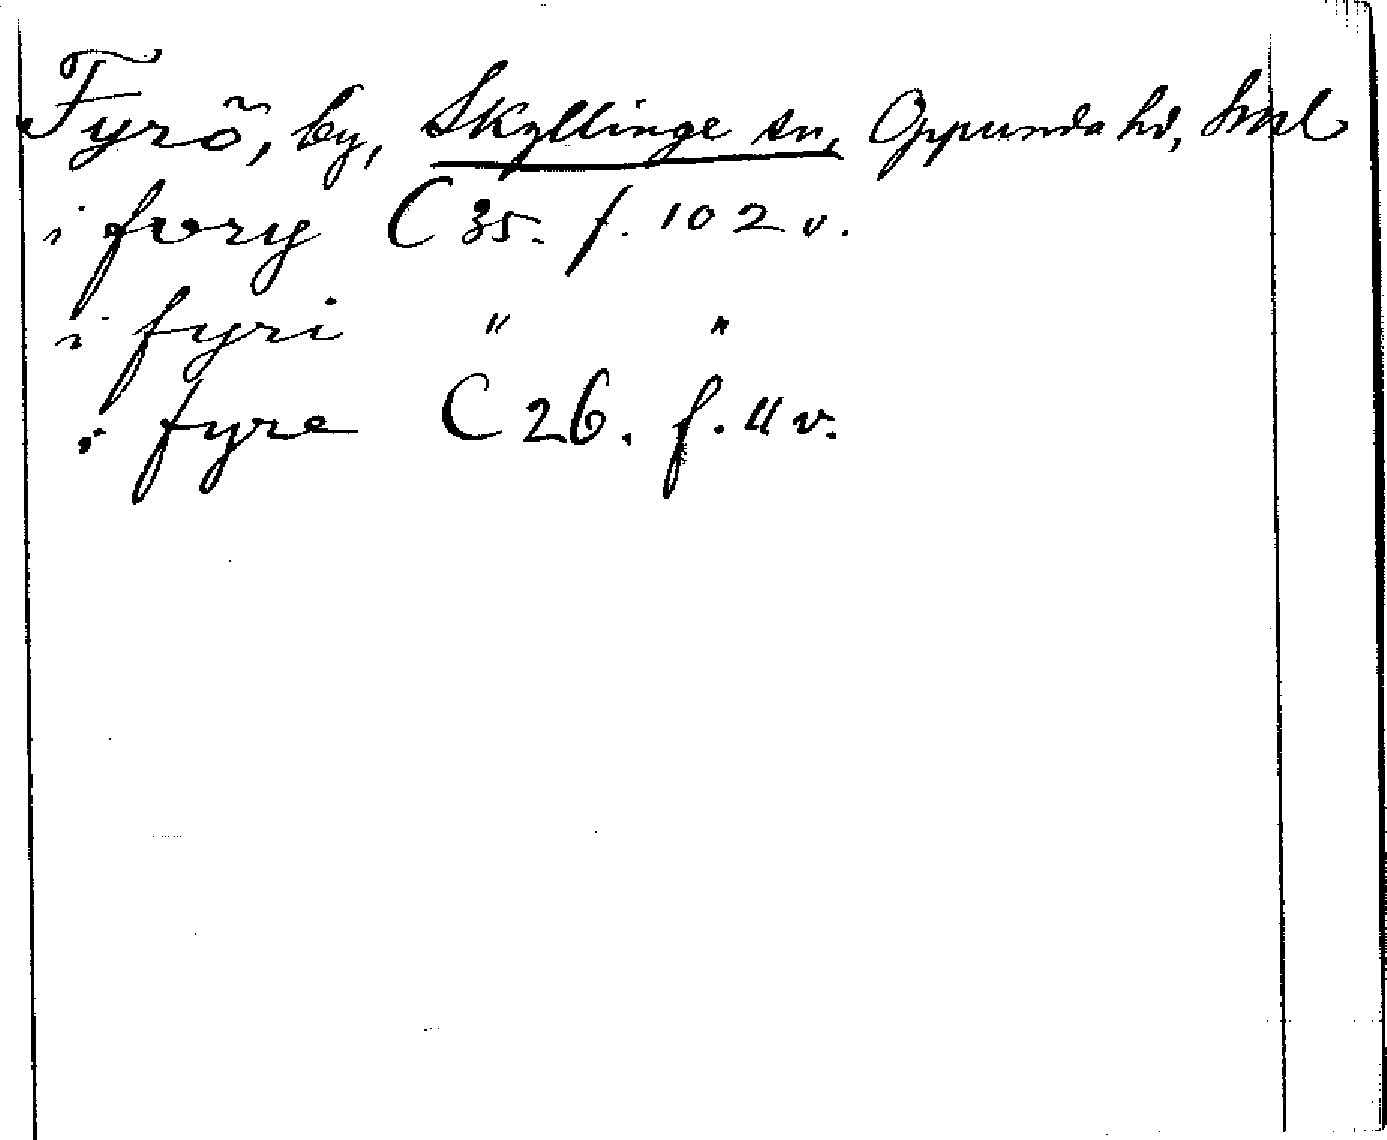 Fyrö, by, Skyllinge sn, Oppunda hd, Sml
i fvry C 35. f. 102 v.
i fyri " "
i fyre C 26. f. 11 v.